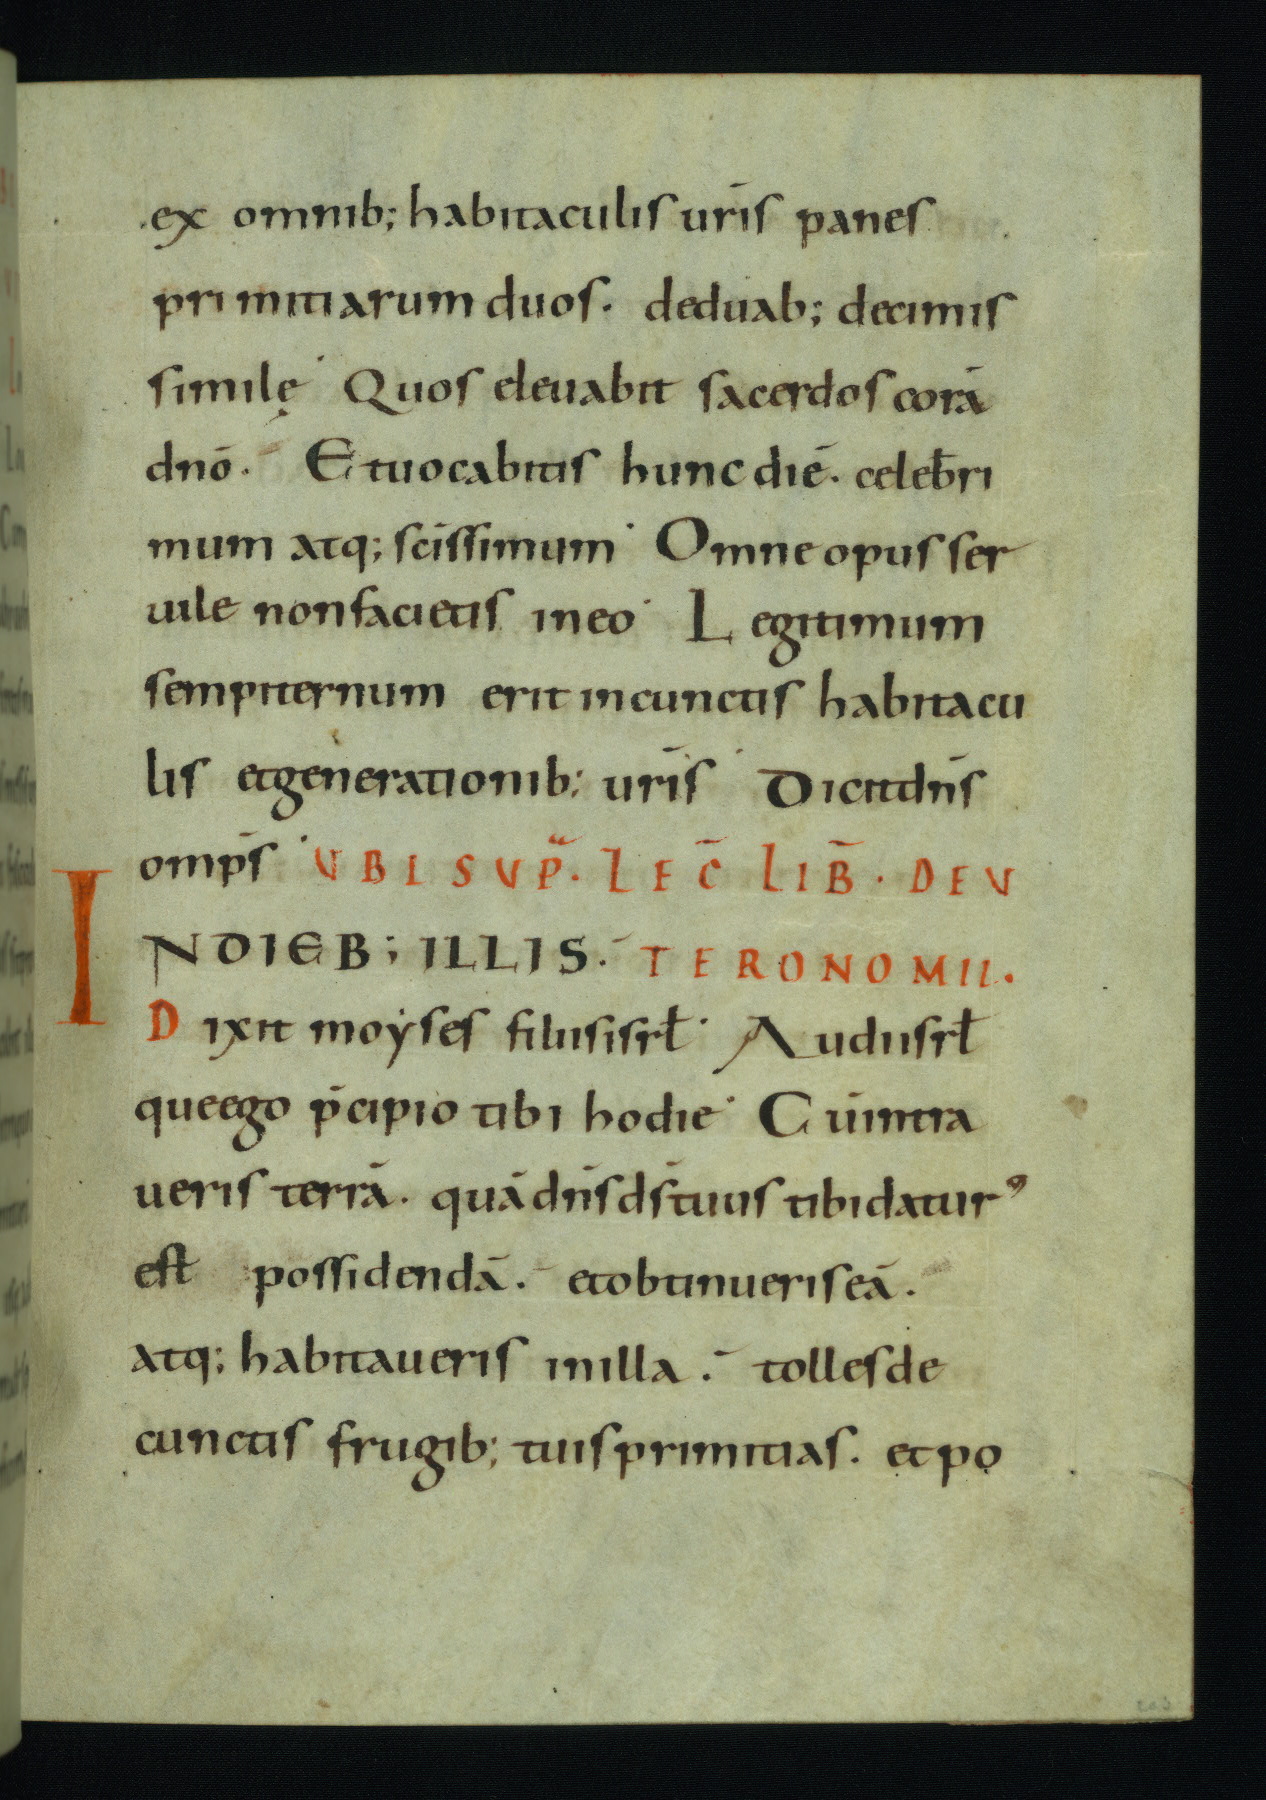 ex omnib; habitaculis ur̄is panes
primitiarum duos. deduab; decimis
similę Quos eleuabit sacerdos corā
dnō. Et uocabitis hunc diē. celeb̄ri
mum atq; sc̄issimum Omne opus ser
uile non facietis in eo Legitimum
sempiternum erit in cunctis habitacu
lis et generationib; ur̄is Dicit dn̄s
omp̄s UBI SUP̃. LEC̄ LIB̄. DEU
INDIEB; ILLIS. TERONOMII.
Dixit moẏses filiis isrł Audi isrł
que ego p̄cipio tibi hodie Cū intra
ueris terrā. quā dn̄s ds̄ tuus tibi daturꝰ
est possidendā. et obtinueris eā.
atq; habitaueris in illa. tolles de
cunctis frugib; tuis primitias. et po